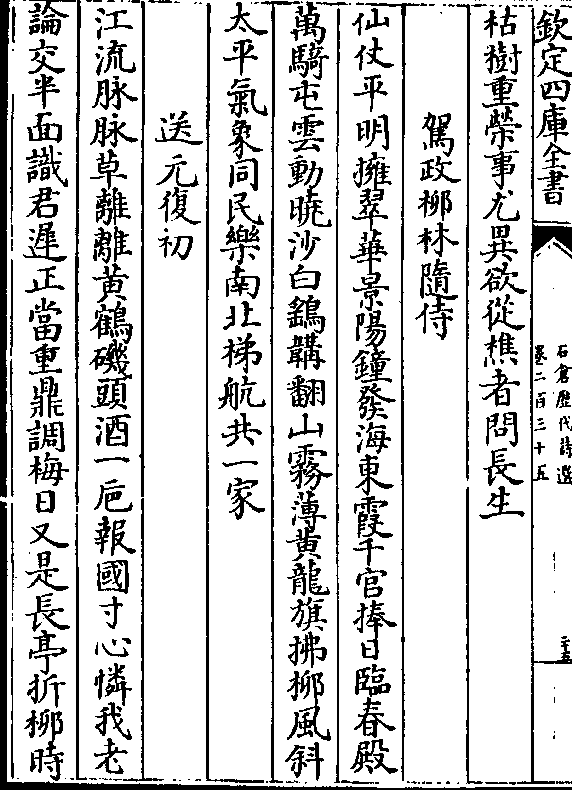 欽定四庫全書
石倉歴代詩選
卷二百三十五
二十五
枯樹重榮事尤異欲從樵者問長生
駕政柳林隨侍
仙仗平明擁翠華景陽鐘發海東霞千官捧日臨春殿
萬騎屯雲動曉沙白鷂韝翻山霧薄黄龍旗拂柳風斜
太平氣象同民樂南北梯航共一家
送元復初
江流脉脉草離離黄鶴磯頭酒一巵報國寸心憐我老
論交半面識君遲正當重鼎調梅日又是長亭折柳時